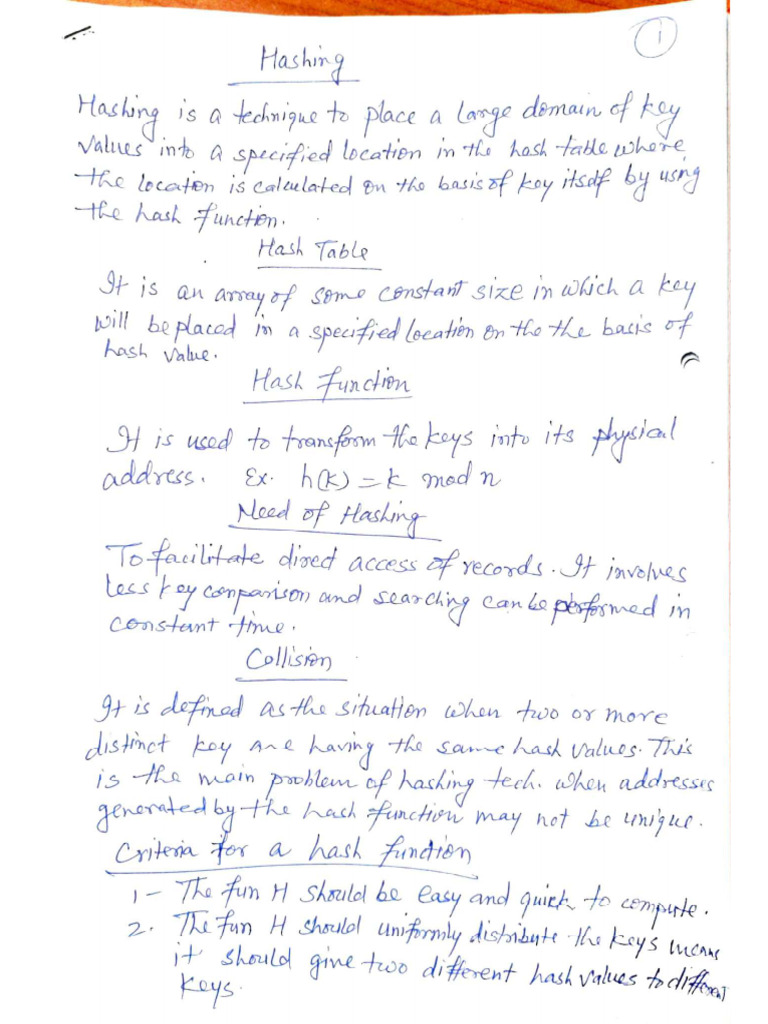 1
Hashing
Hashing is a technique to place a large domain of key
values into a specified location in the hash table where
the location is calculated on the basis of key itself by using
the hash function.
Hash Table
It is an array of some constant size in which a key
will be placed in a specified location on the the basis of
hash value.
Hash function
It is used to transform the keys into its physical
address. Ex. h(k) = k mod n
Need of Hashing
To facilitate direct access of records. It involves
less key comparison and searching can be performed in
constant time.
Collision
It is defined as the situation when two or more
distinct key are having the same hash values. This
is the main problem of hashing tech. when addresses
generated by the hash function may not be unique.
Criteria for a hash function
1- The fun H should be easy and quick to compute.
2. The fun H should uniformly distribute the keys means
it should give two different hash values to different
keys.